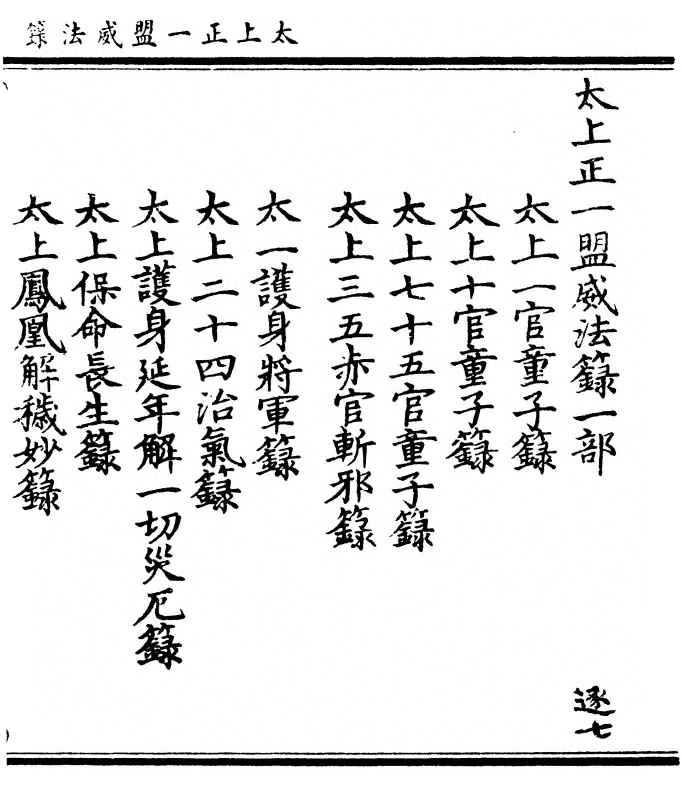 太上正一盟威法籙
太上正一盟威法籙一部
逐七
太上一官童子籙
太上十官童子籙
太上七十五官童子籙
太上三五赤官斬邪籙
太一護身將軍籙
太上二十四治氣籙
太上護身延年解一切災厄籙
太上保命長生籙
太上鳳凰解穢妙籙